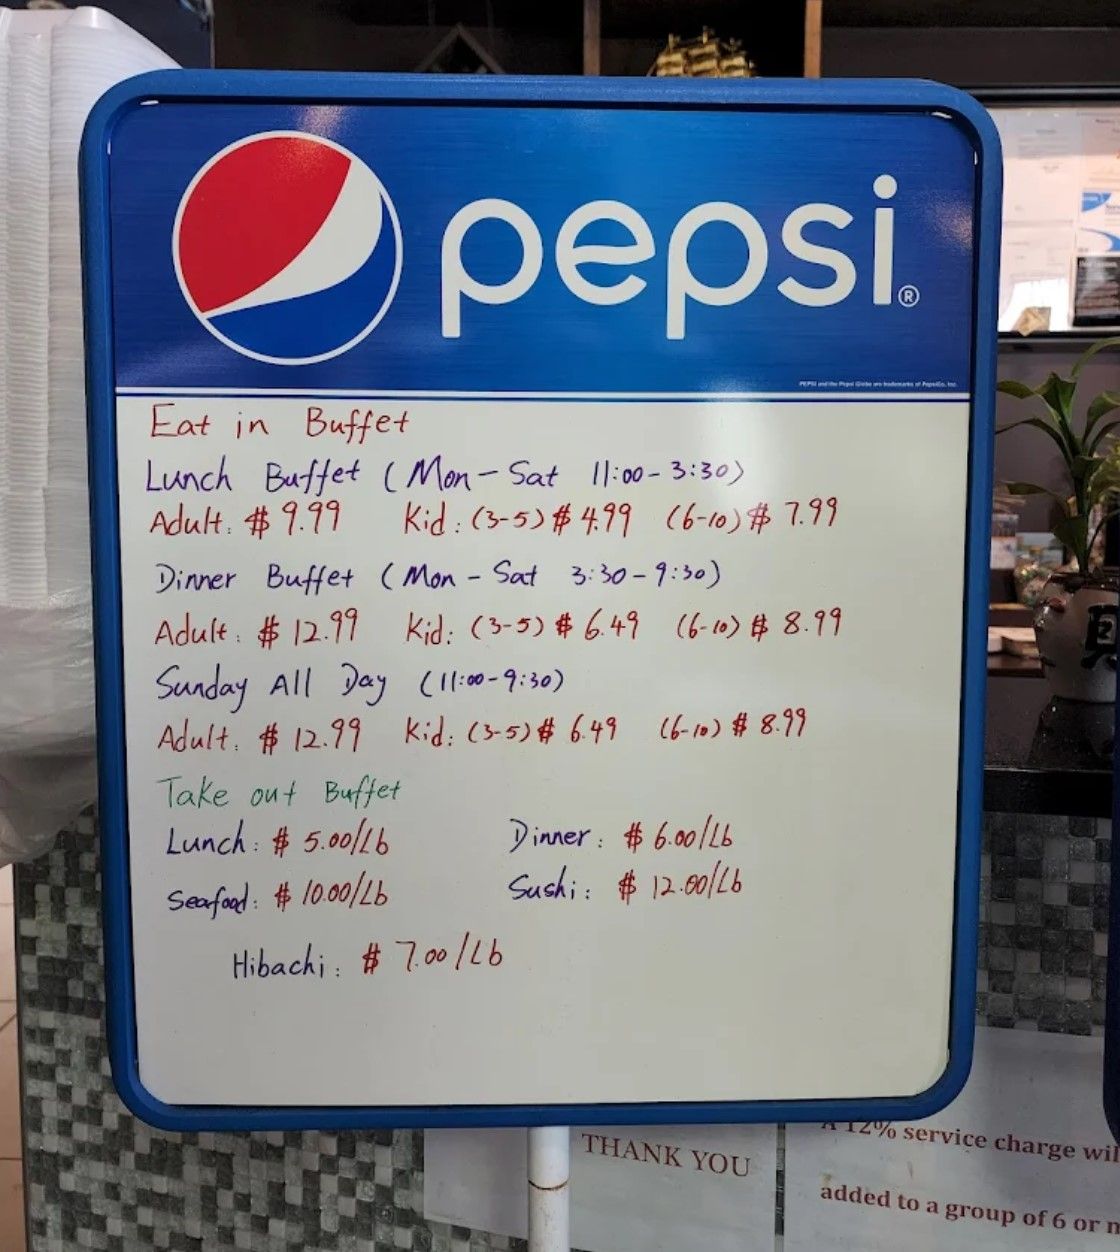 pepsi®
PEPSI and the Pepsi Globe are trademarks of PepsiCo, Inc.
Eat in Buffet
Lunch Buffet (Mon-Sat 11:00-3:30)
Adult: $ 9.99 Kid: (3-5) $ 4.99 (6-10) $ 7.99
Dinner Buffet (Mon-Sat 3:30-9:30)
Adult: $ 12.99 Kid: (3-5) $ 6.49 (6-10) $ 8.99
Sunday All Day (11:00-9:30)
Adult: $ 12.99 Kid: (3-5) $ 6.49 (6-10) $ 8.99
Take out Buffet
Lunch: $ 5.00/Lb Dinner: $ 6.00/Lb
Seafood: $ 10.00/Lb Sushi: $ 12.00/Lb
Hibachi: $ 7.00/Lb
THANK YOU
A 12% service charge wil
added to a group of 6 or